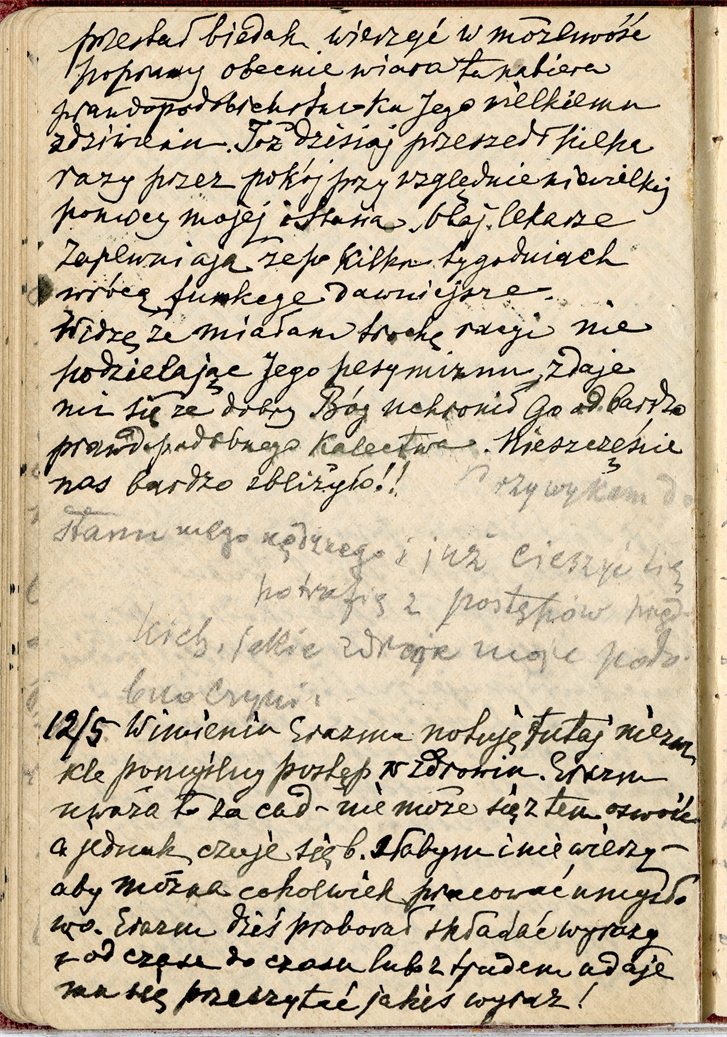 przestał biedak wierzyć w możliwość
poprawy obecnie wiara ta nabiera
prawdopodobieństwa ku Jego wielkiemu
zdziwieniu. Toż dzisiaj przeszedł kilka
razy przez pokój przy względnie niewielkiej
pomocy mojej i Stasia.
lekarze
Zapewniają że po kilku tygodniach
wrócą funkcye dawniejsze.
Widzę że miałam trochę racyi nie
podzielając Jego pesymizmu, zdaje
mi się że dobry Bóg uchronił Go od bardzo
prawdopodobnego kalectwa. Nieszczęście
nas bardzo zbliżyło!!
Przywykam do
stanu mego nędznego i już cieszyć się
potrafię z postępów pręd-
kich, jakie zdrowie moje podo-
bno czyni.
12/5 W imieniu Erazma notuję tutaj niezwy
kle pomyślny postęp w zdrowiu. Erazm
uważa to za cud – nie może się z tem oswoić
a jednak czuje się b. słabym i nie wierzy –
aby można cokolwiek pracować umysło
wo. Erazm dziś próbował składać wyrazy
i od czasu do czasu lubo z trudem udaje
mu się przeczytać jakiś wyraz!